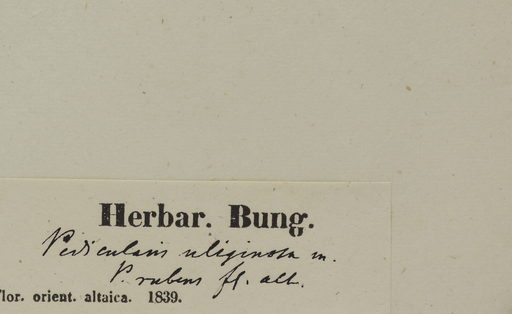 Herbar. Bung.
Pedicularis uliginosa m.
P. rubens fl. alt.
flor. orient. altaica. 1839.